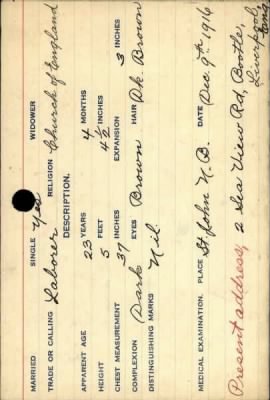 MARRIED SINGLE Yes WIDOWER
TRADE OR CALLING Laborer RELIGION Church of England
DESCRIPTION.
APPARENT AGE 23 YEARS 4 MONTHS
HEIGHT 5 FEET 4½ INCHES
CHEST MEASUREMENT 37 INCHES EXPANSION 3 INCHES
COMPLEXION Dark EYES Brown HAIR Dk. Brown
DISTINGUISHING MARKS Nil
MEDICAL EXAMINATION. PLACE St. John N.B. DATE Dec. 9th 1916
Present address, 2 Sea View Rd, Bootle,
Liverpool,
Eng